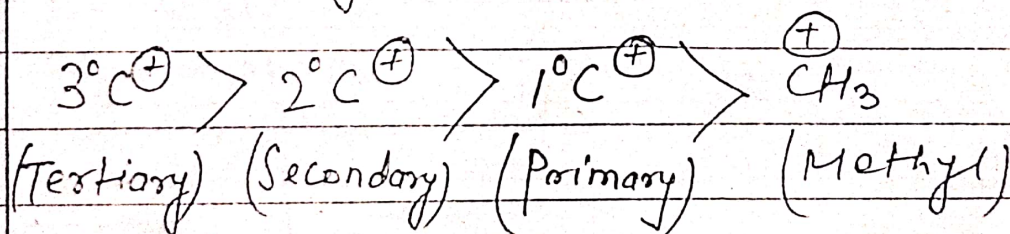 3° C⊕ > 2° C⊕ > 1° C⊕ > ⊕CH₃
(Tertiary) (Secondary) (Primary) (Methyl)